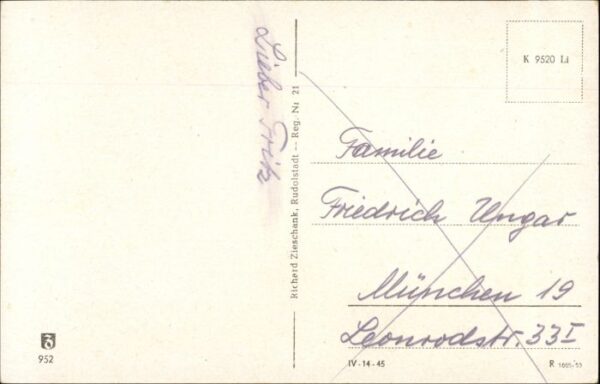 Lieber Fritz
Richard Zieschank, Rudolstadt — Reg. Nr 21
K 9520 Li
Familie
Friedrich Ungar
München 19
Leonrodstr. 33I
952
IV-14-45
R